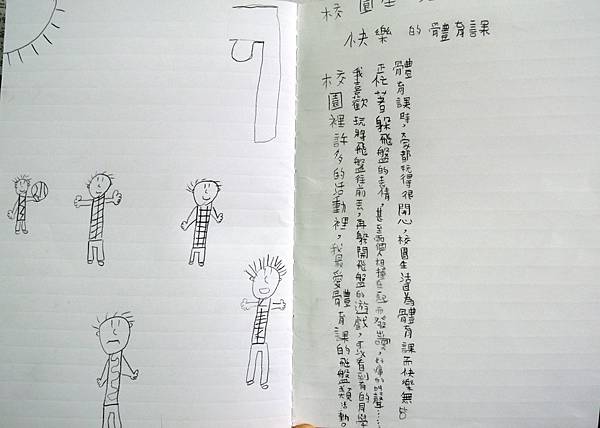 校 園 生
快樂 的 體育課
校園裡許多的活動裡，我最愛體育課的飛盤類活動。
我喜歡玩將飛盤往前丟，再躲開飛盤的遊戲，或看到有的同學
正忙著躲飛盤的表情，甚至兩個人相撞在一起而發出啊，好痛的叫聲……
體育課時，大家都玩得很開心，校園生活因為體育課而快樂無